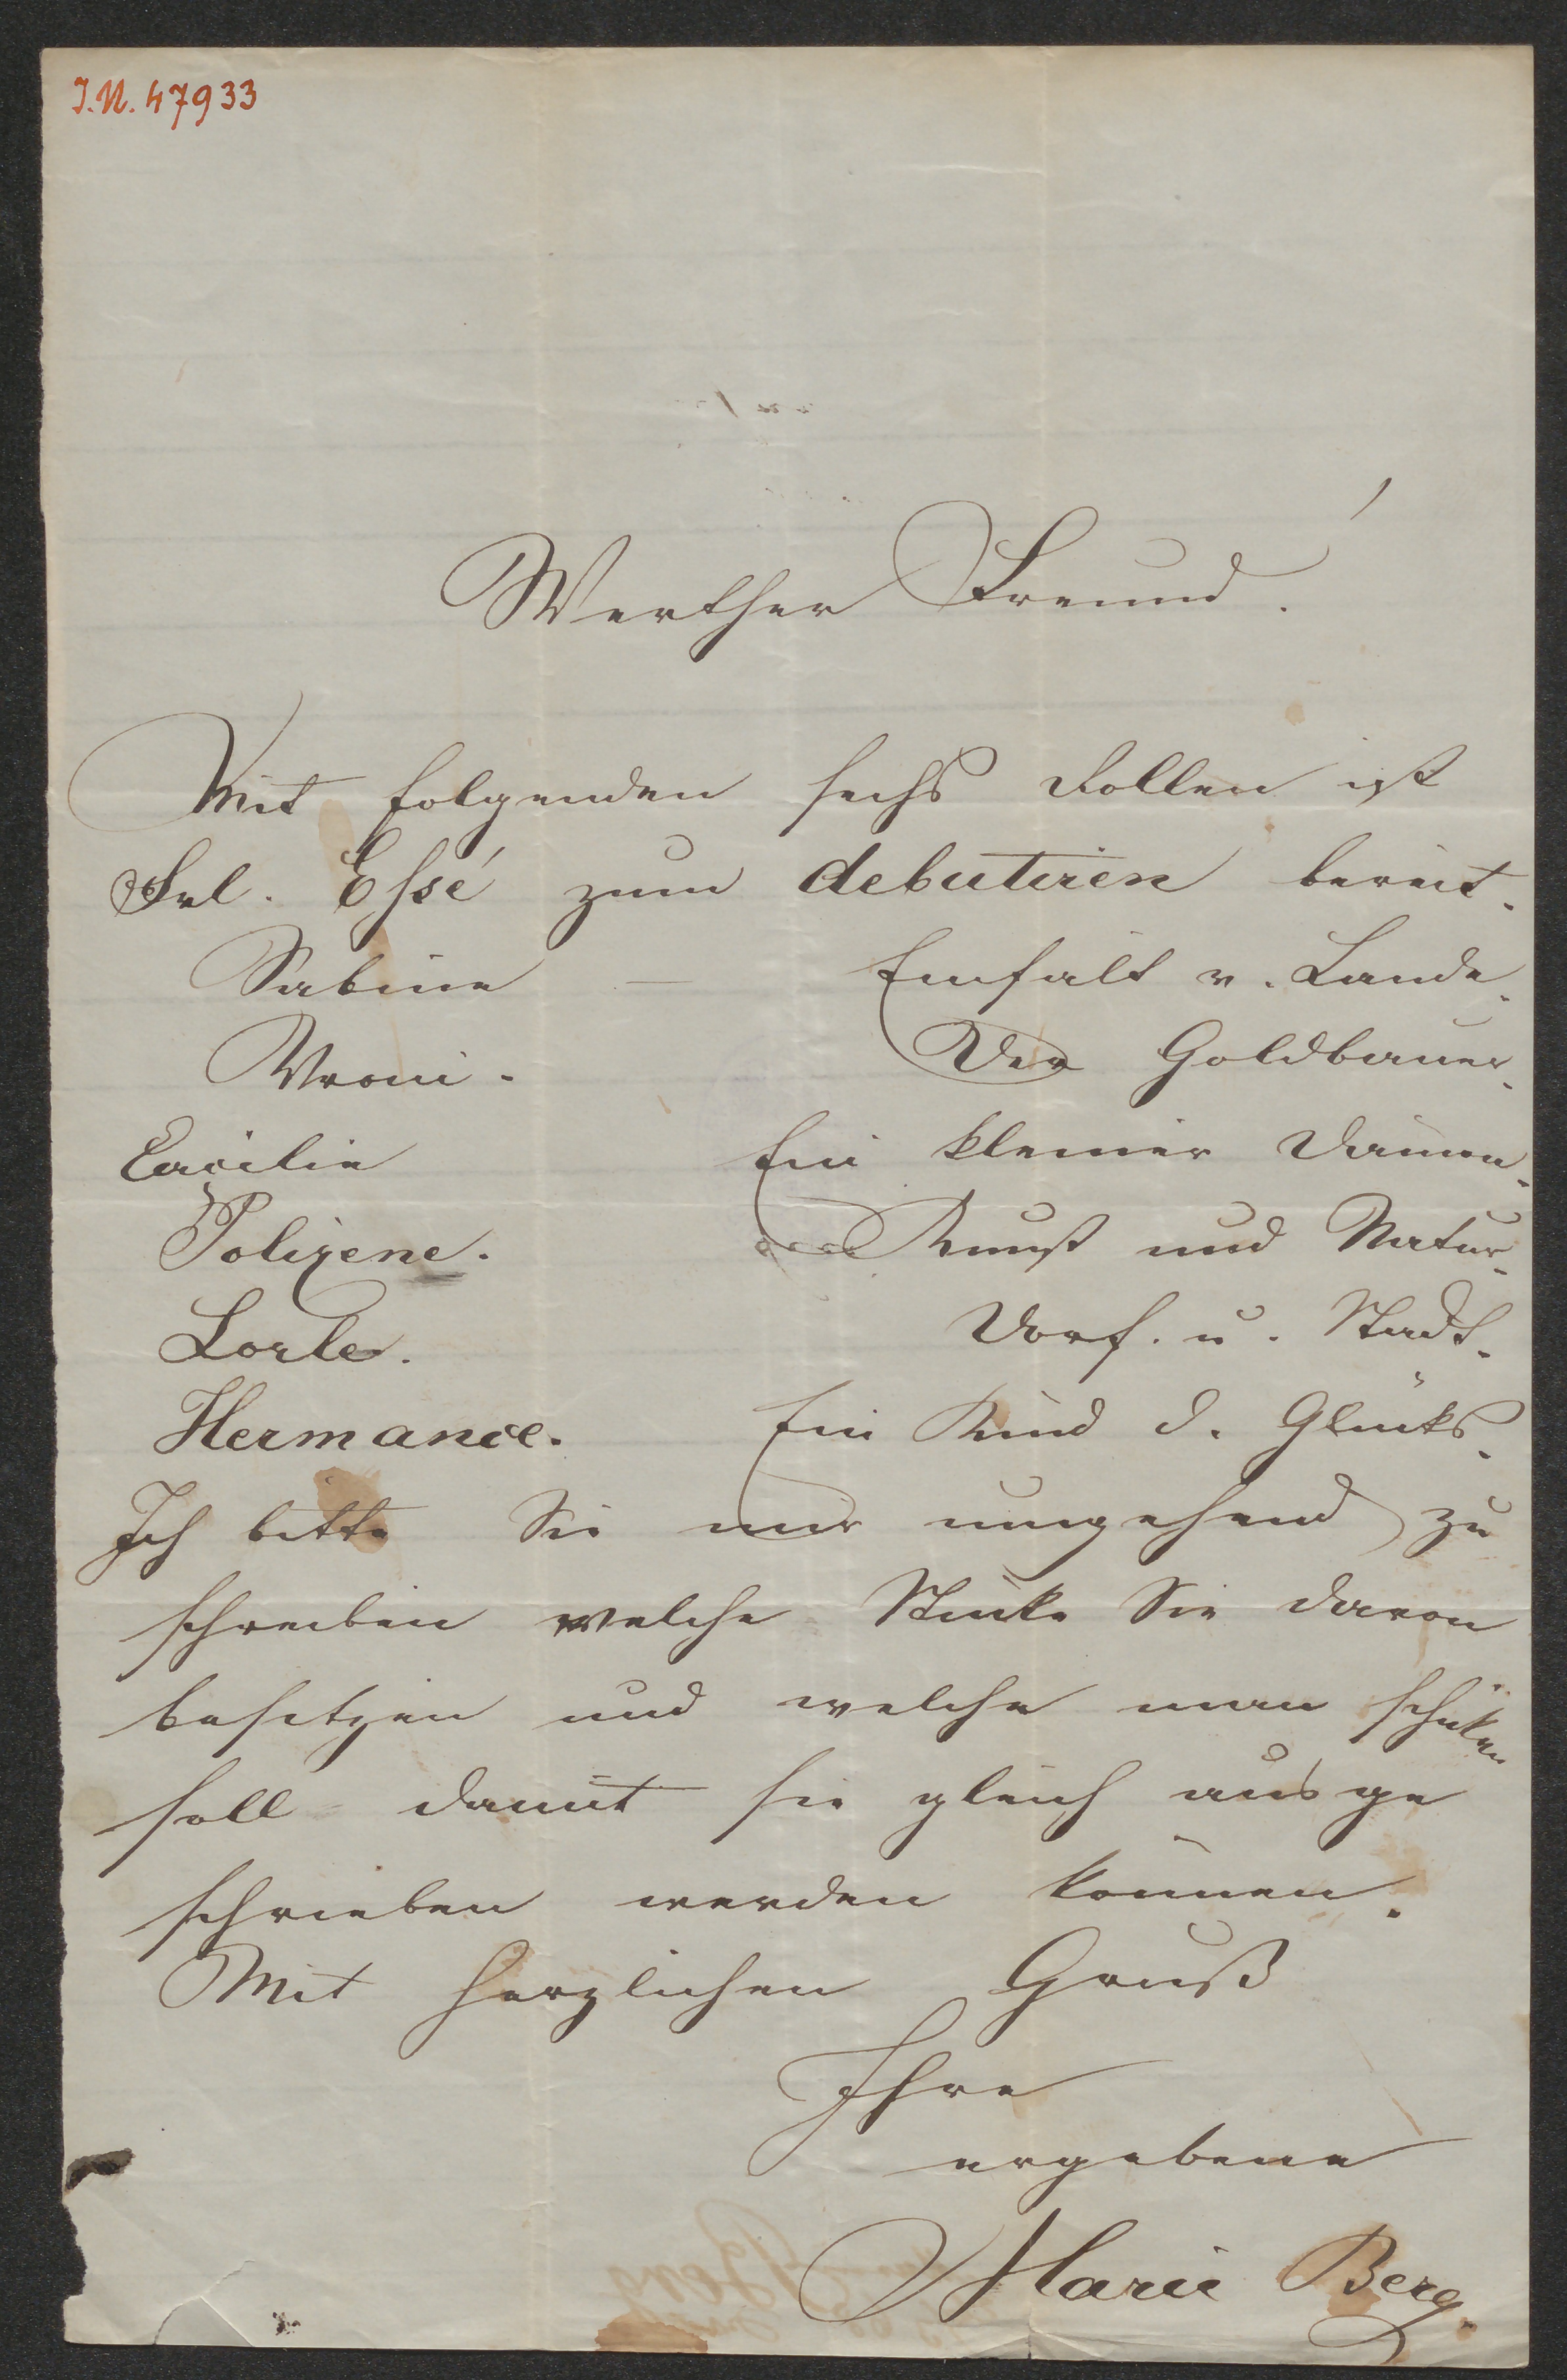 I.N. 47933
Werther Freund!
Mit folgenden sechs Rollen ist
Frl. Essé zum debutiren bereit.
Sabine — Einfalt v. Lande.
Vroni. Der Goldbauer.
Cäcilie Ein kleiner Dämon.
Polixene. Kunst und Natur.
Lorle. Dorf. u. Stadt.
Hermance. Ein Kind d. Glücks.
Ich bitte Sie mir umgehend zu
schreiben welche Stücke Sie davon
besitzen und welche man schicken
soll damit sie gleich ausge
schrieben werden können.
Mit herzlichen Gruß
Ihre
ergebene
Marie Berg.